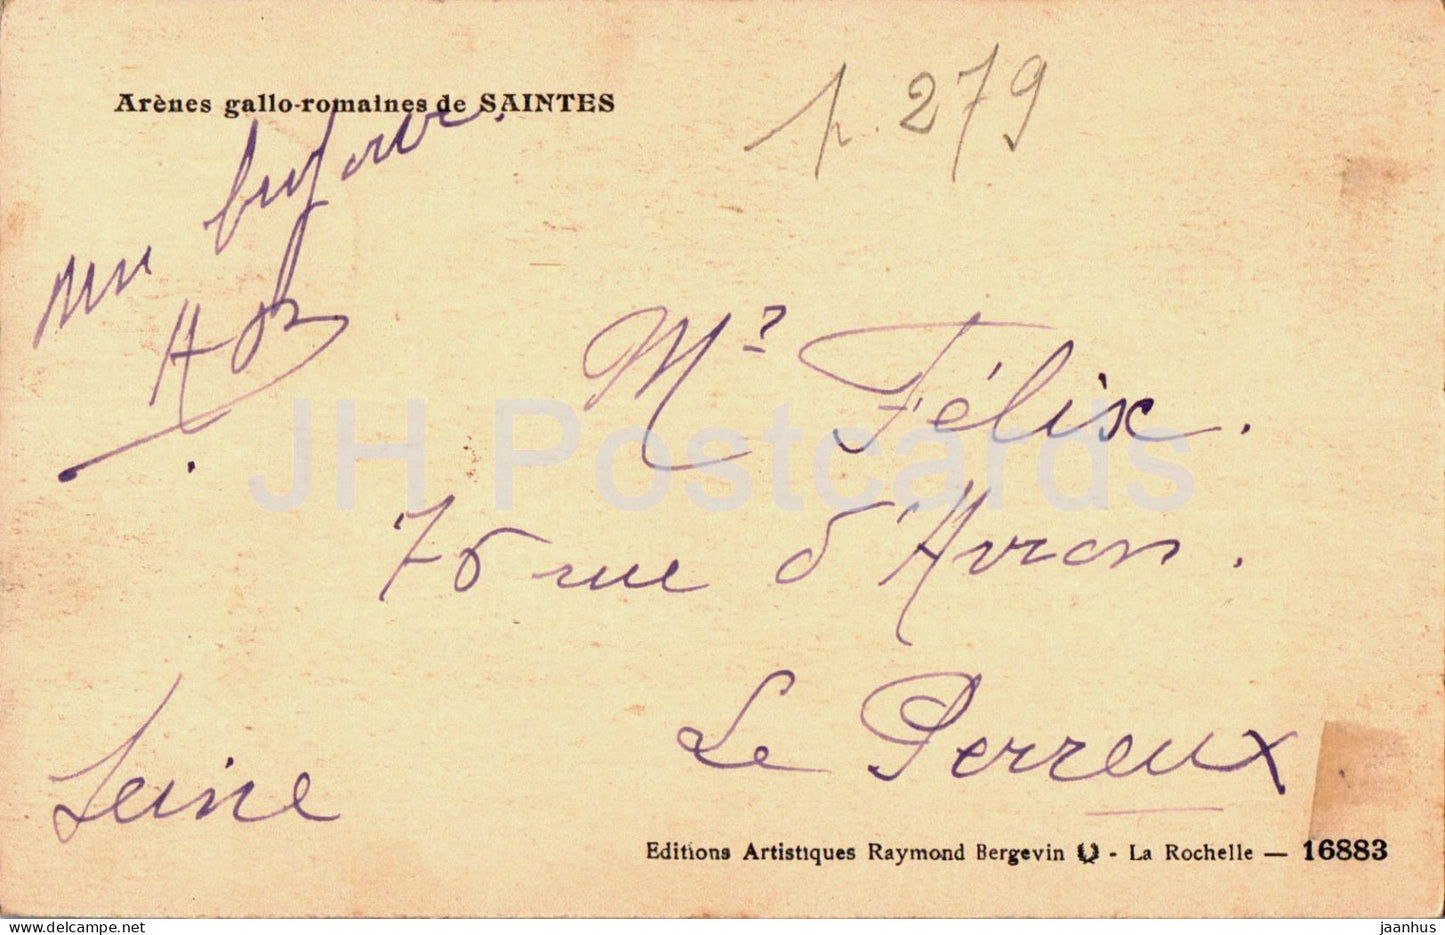 Arènes gallo-romaines de SAINTES
p. 279
un bonjour.
Mr Félix.
76 rue d'Avron.
Le Perreux
Seine
Editions Artistiques Raymond Bergevin - La Rochelle — 16883
JH Postcards
delcampe.net
jaanhus